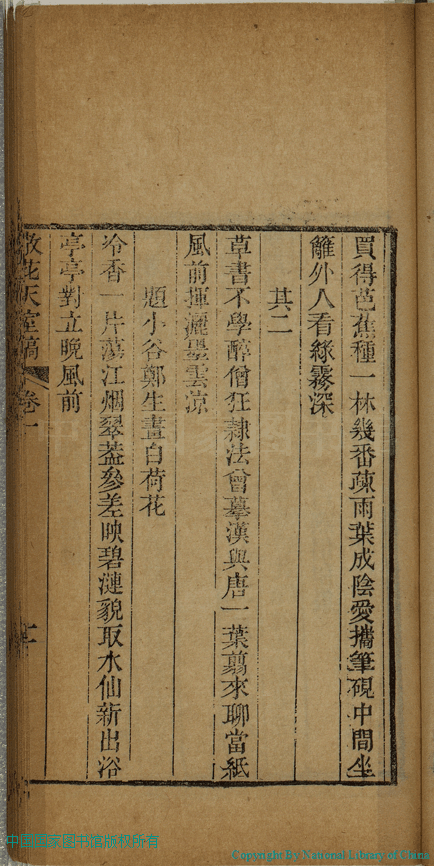 買得芭蕉種一林幾番疎雨葉成陰愛攜筆硯中間坐
籬外人看綠霧深
其二
草書不學醉僧狂隸法曾摹漢與唐一葉翦來聊當紙
風前揮灑墨雲涼
題小谷鄭生畫白荷花
冷香一片蕩江烟翠蓋參差映碧漣貌取水仙新出浴
亭亭對立晚風前
散花天室稿 卷一
中国国家图书馆版权所有
Copyright By National Library of China